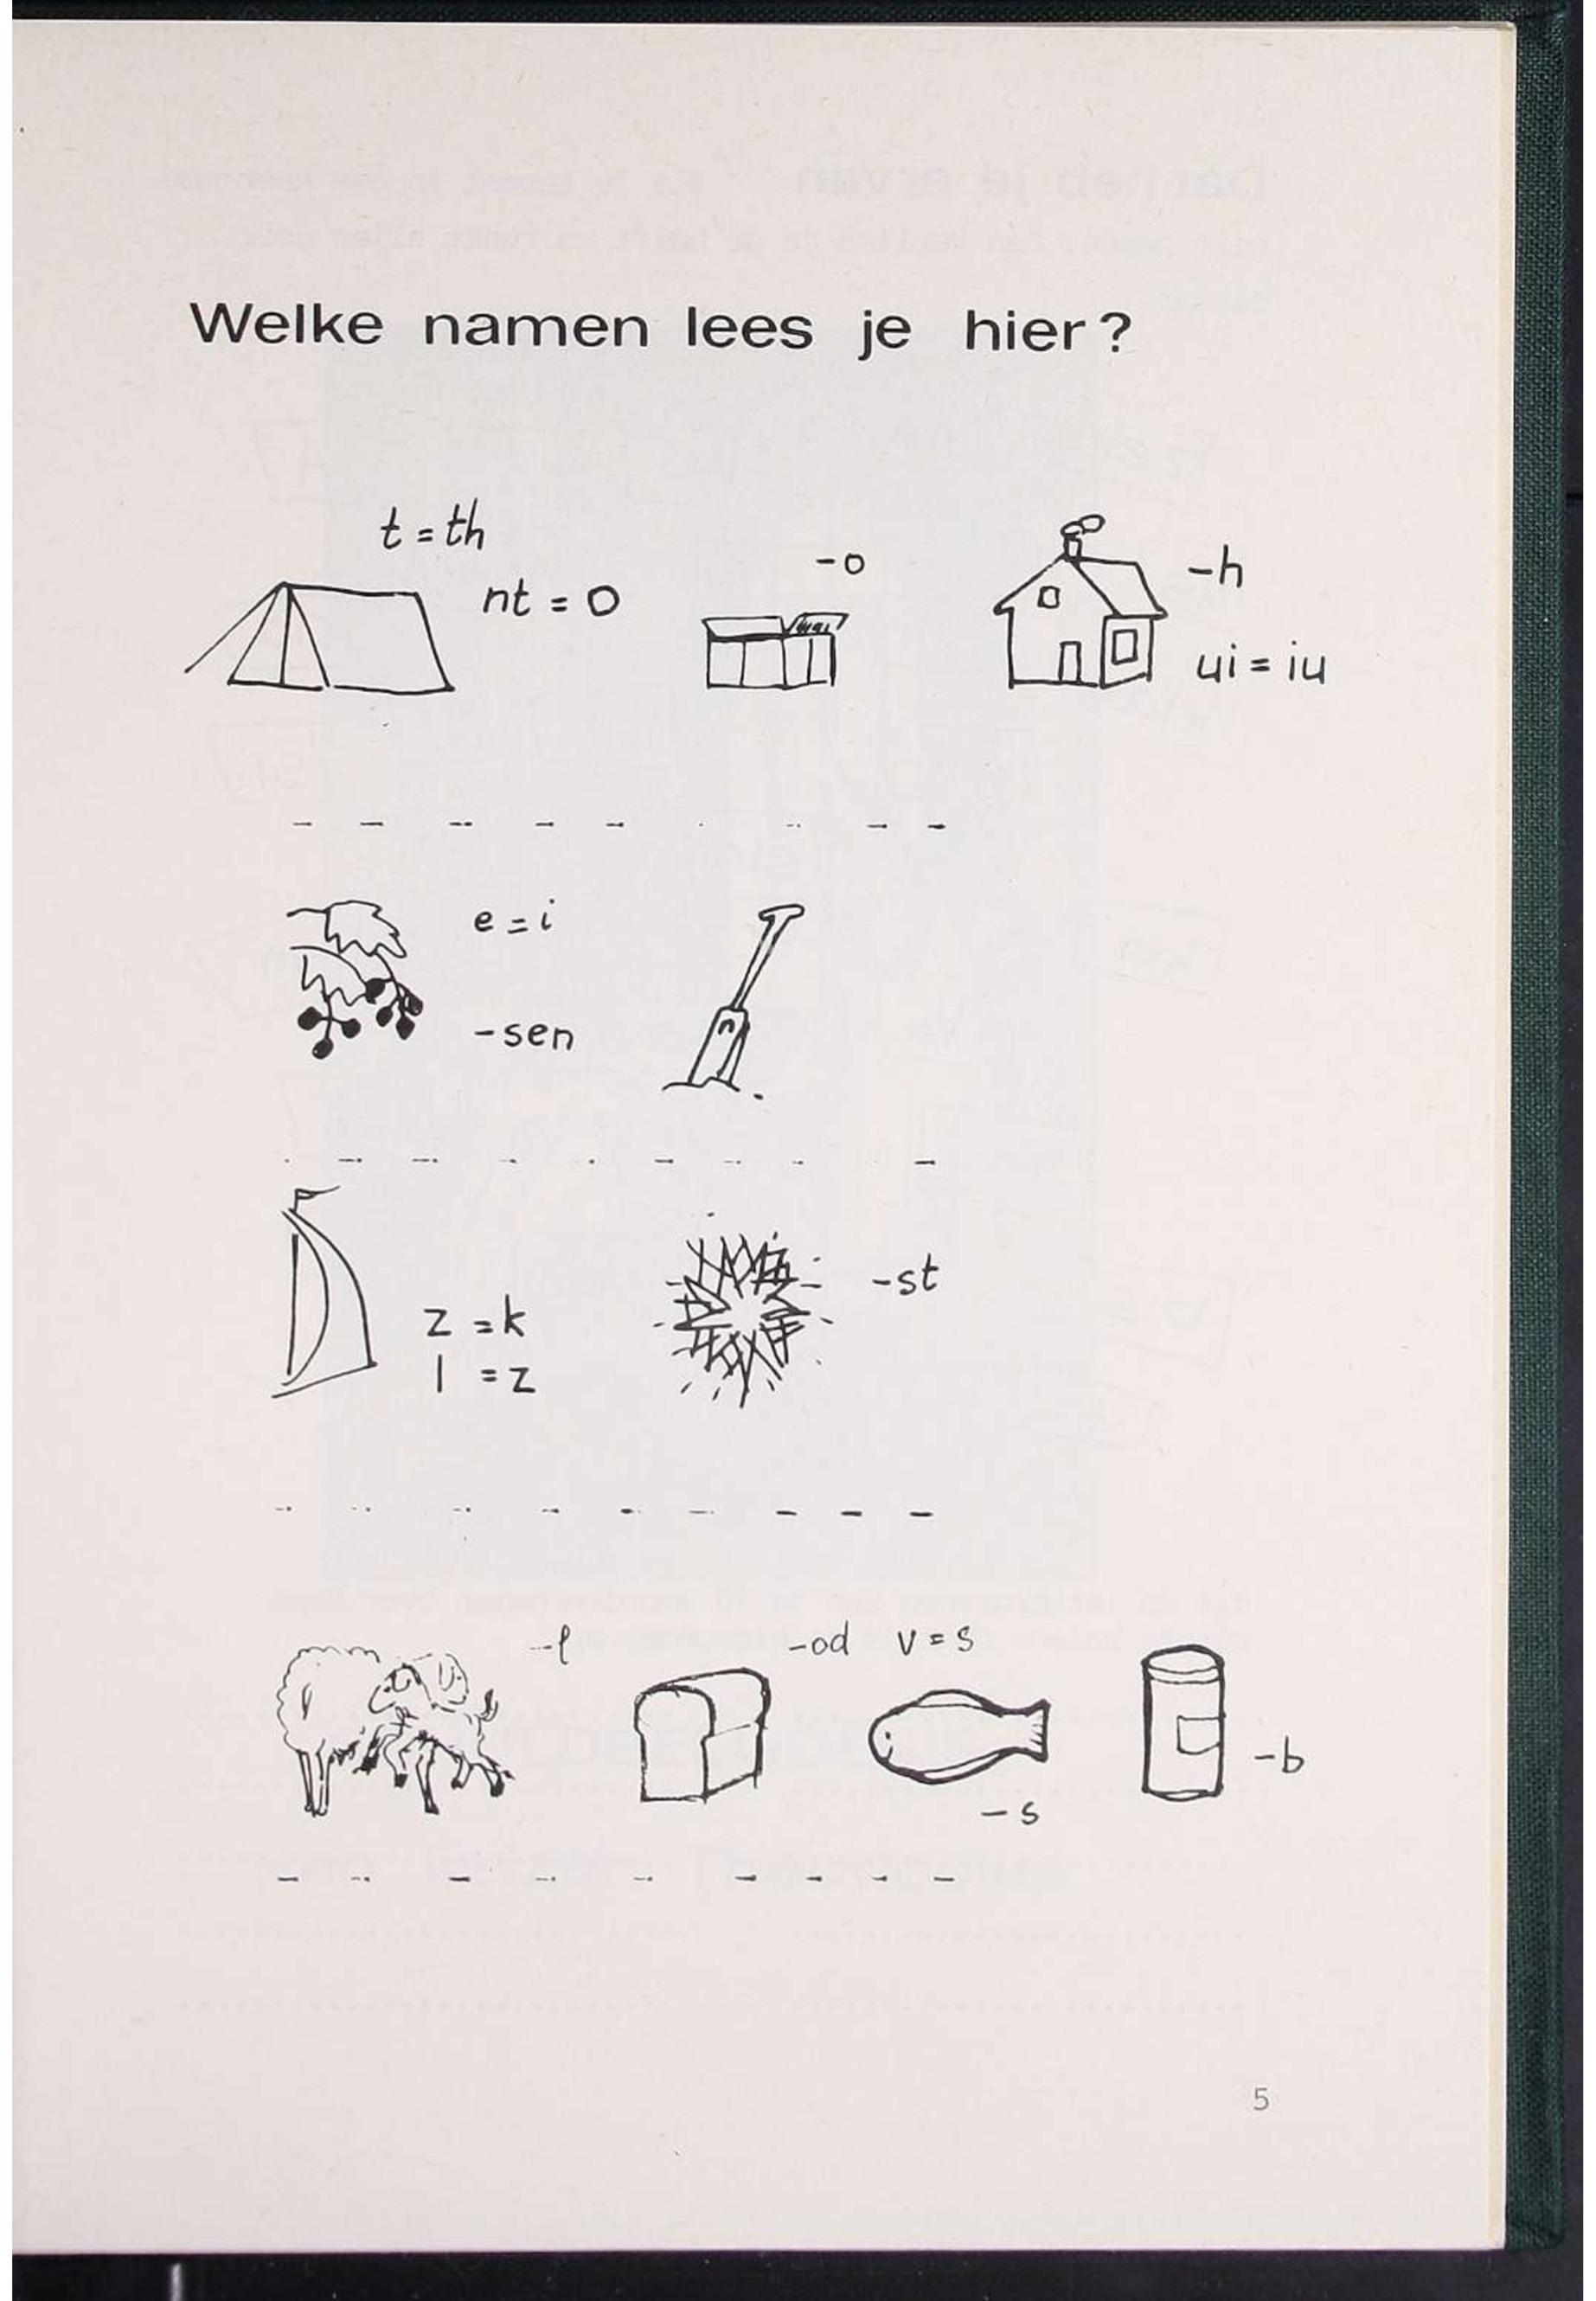 Welke namen lees je hier?
t = th
nt = o
-o
-h
ui = iu
e = i
-sen
n
z = k
l = z
-st
-l
-od
v = s
-s
-b
5